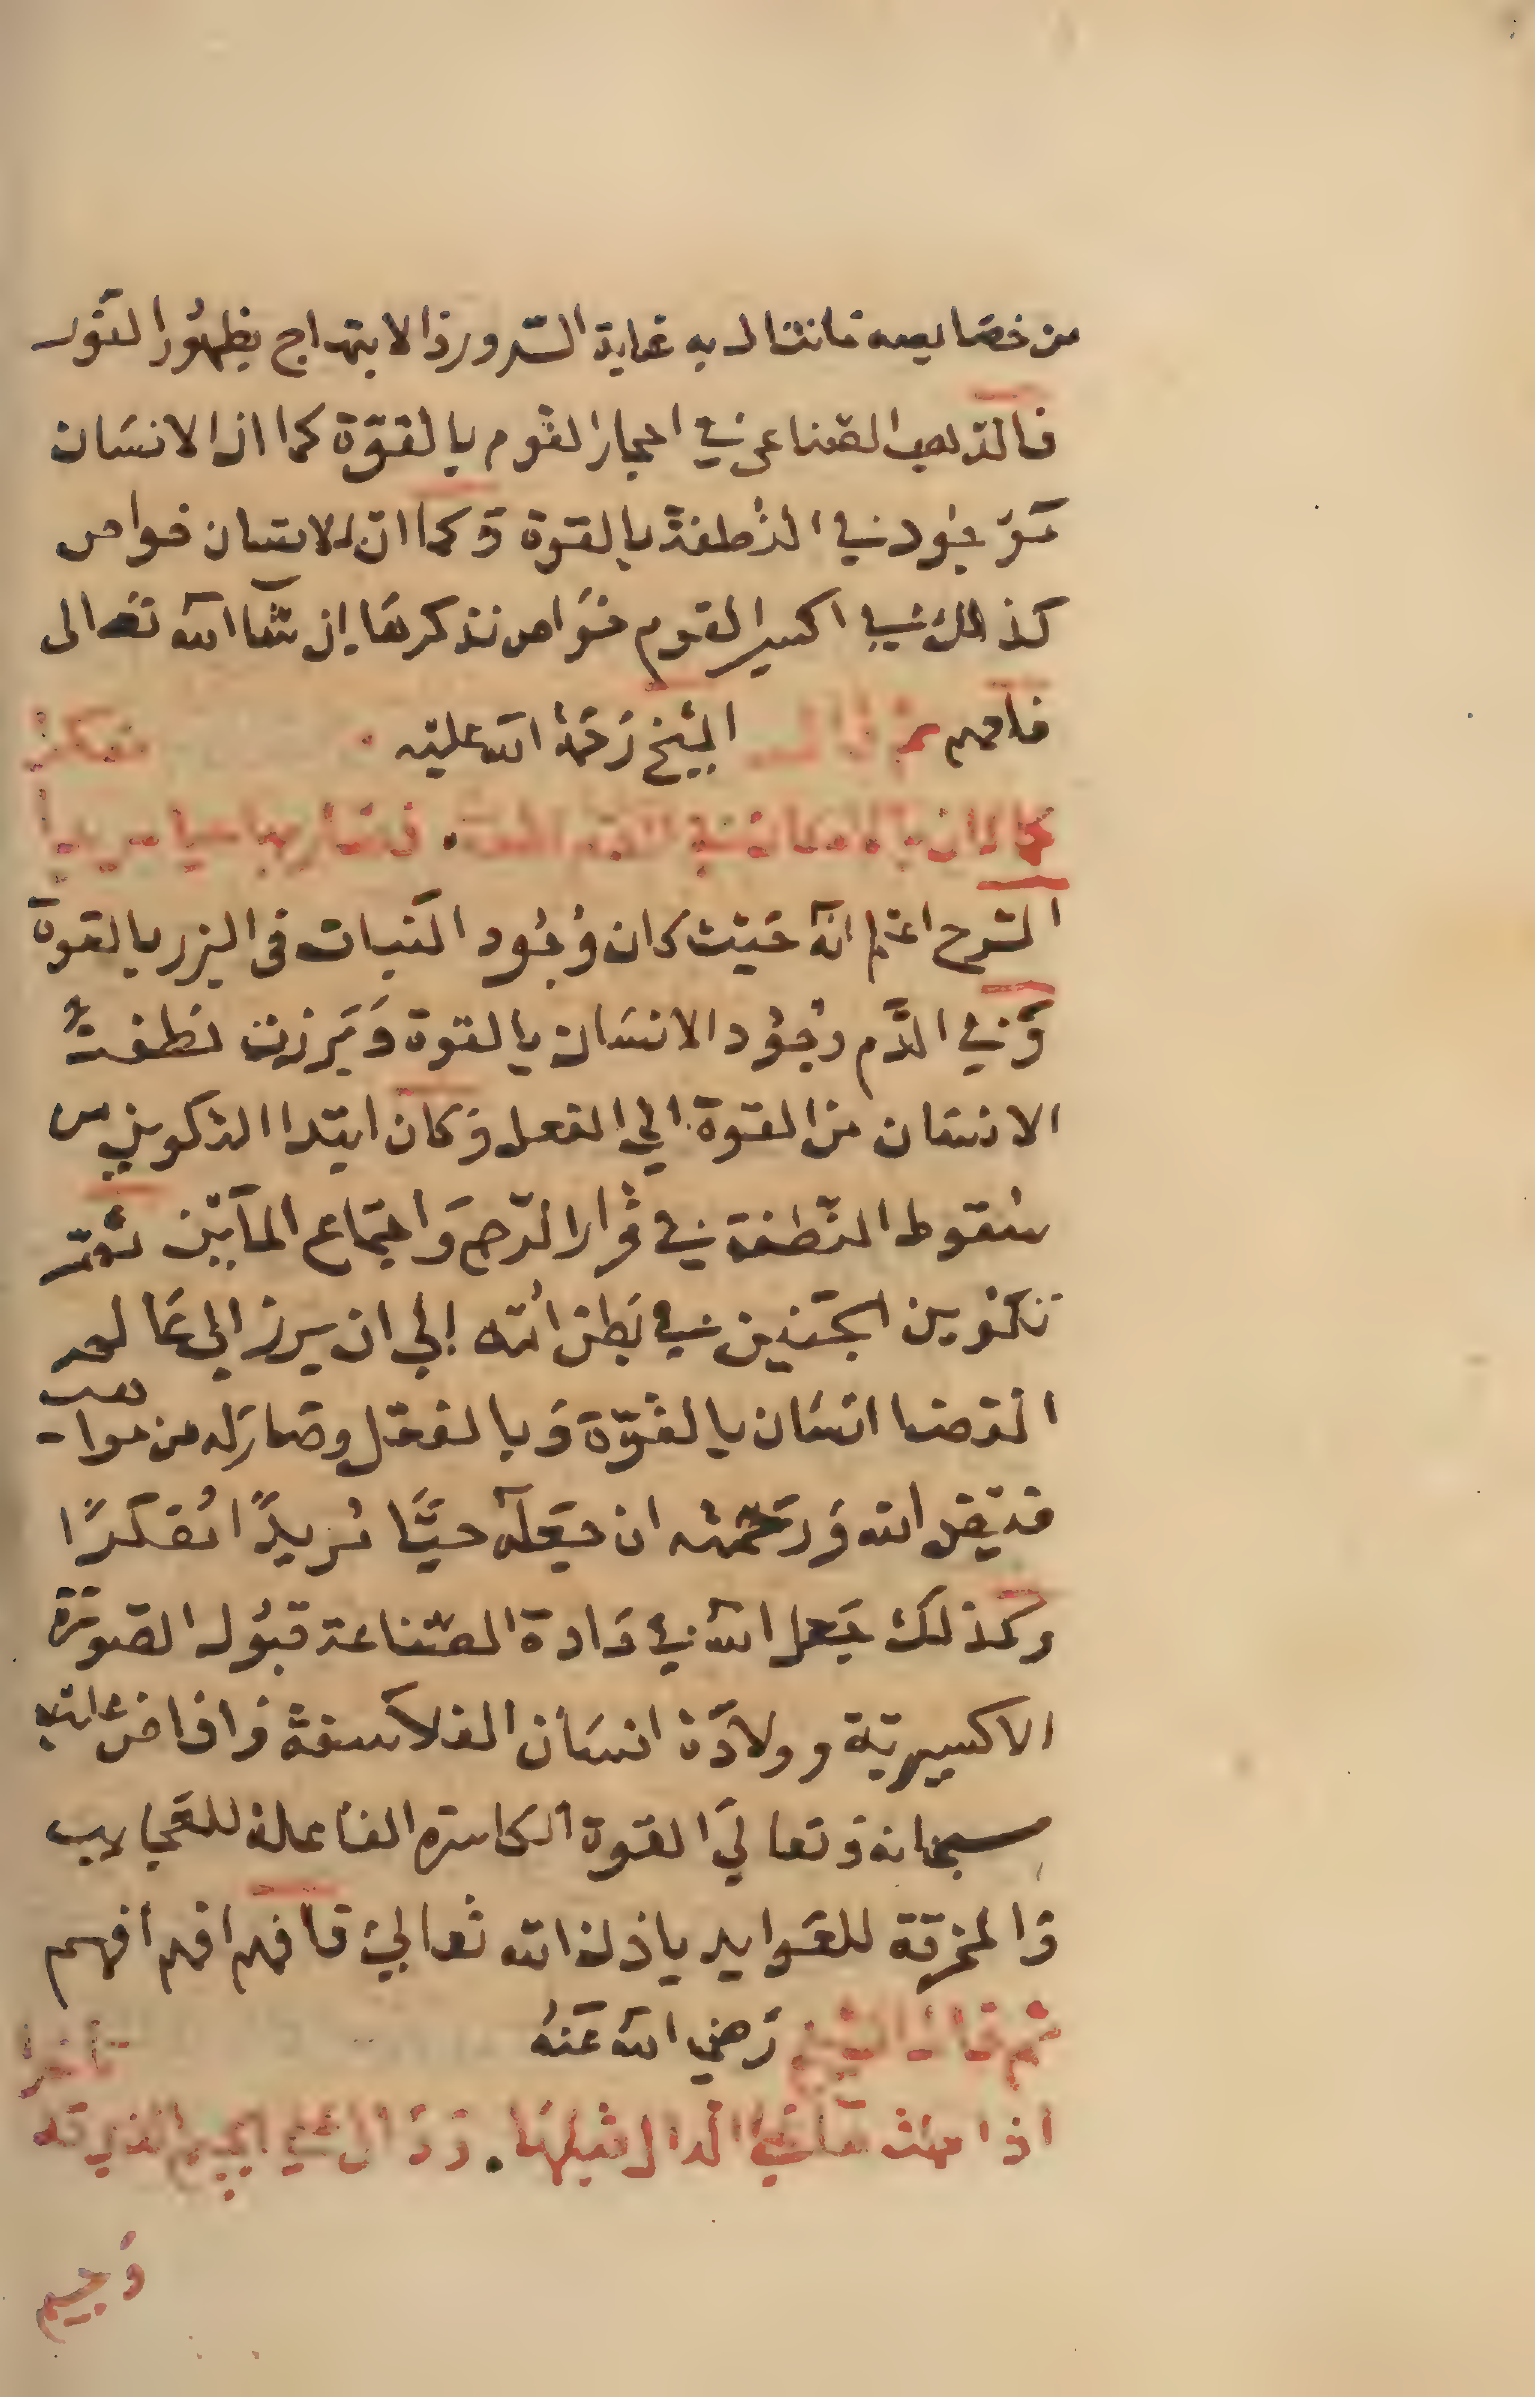 من خصايصه ما ننال به غاية السرور والابتهاج بظهور النور
فالذهب الصناعي في احجار القوم بالقوة كما ان الانسان
موجود في النطفة بالقوة وكما ان للانسان خواص
كذلك في اكسير القوم خواص نذكرها إن شآ الله تعالى
فافهم ثم قال الشيخ رَحمة الله عليه
كما كان في
الشرح اعلم انه حَيث كان وُجُود النبات في البزر بالقوة
وَفي الدَّم وُجُود الانسَان بالقوة وَبَرزت نطفة
الانسان من القوة الي الفعل وَكان ابتدا التكوين من
سُقوط النطفة في قرار الرحم وَاجتماع المآيَين ثم
تكوين الجنين في بَطن امّه إلي ان يبرز الي عَالم
الفضا انسَان بالقُوّة وَبالفعل وصَار له من مواهب
فضل الله وَرَحمته ان جَعله حيًّا مُريدًا مُفكرًا
وكذلك جَعل الله في مَادة الصناعة قبُول الصورة
الاكسيرية وولادَة انسَان الفلاسفة وافاض عليه الله
سبحانه وتعالي القوة الكاسرة الفاعلة للعجايب
والخرقة للعوايد باذن الله تعالي فافهم افهم افهم
ثم قال الشيخ رَضي الله عَنهُ
اذا
وَجيم